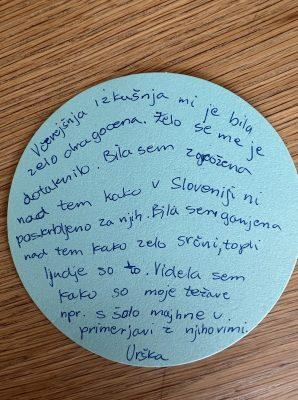 Včerejšnja izkušnja mi je bila
zelo dragocena. Zelo se me je
dotaknilo. Bila sem zgrožena
nad tem kako v Sloveniji ni
poskrbljeno za njih. Bila sem ganjena
nad tem kako zelo srčni, topli
ljudje so to. Videla sem
kako so moje težave
npr. s šolo majhne v
primerjavi z njihovimi.
Urška